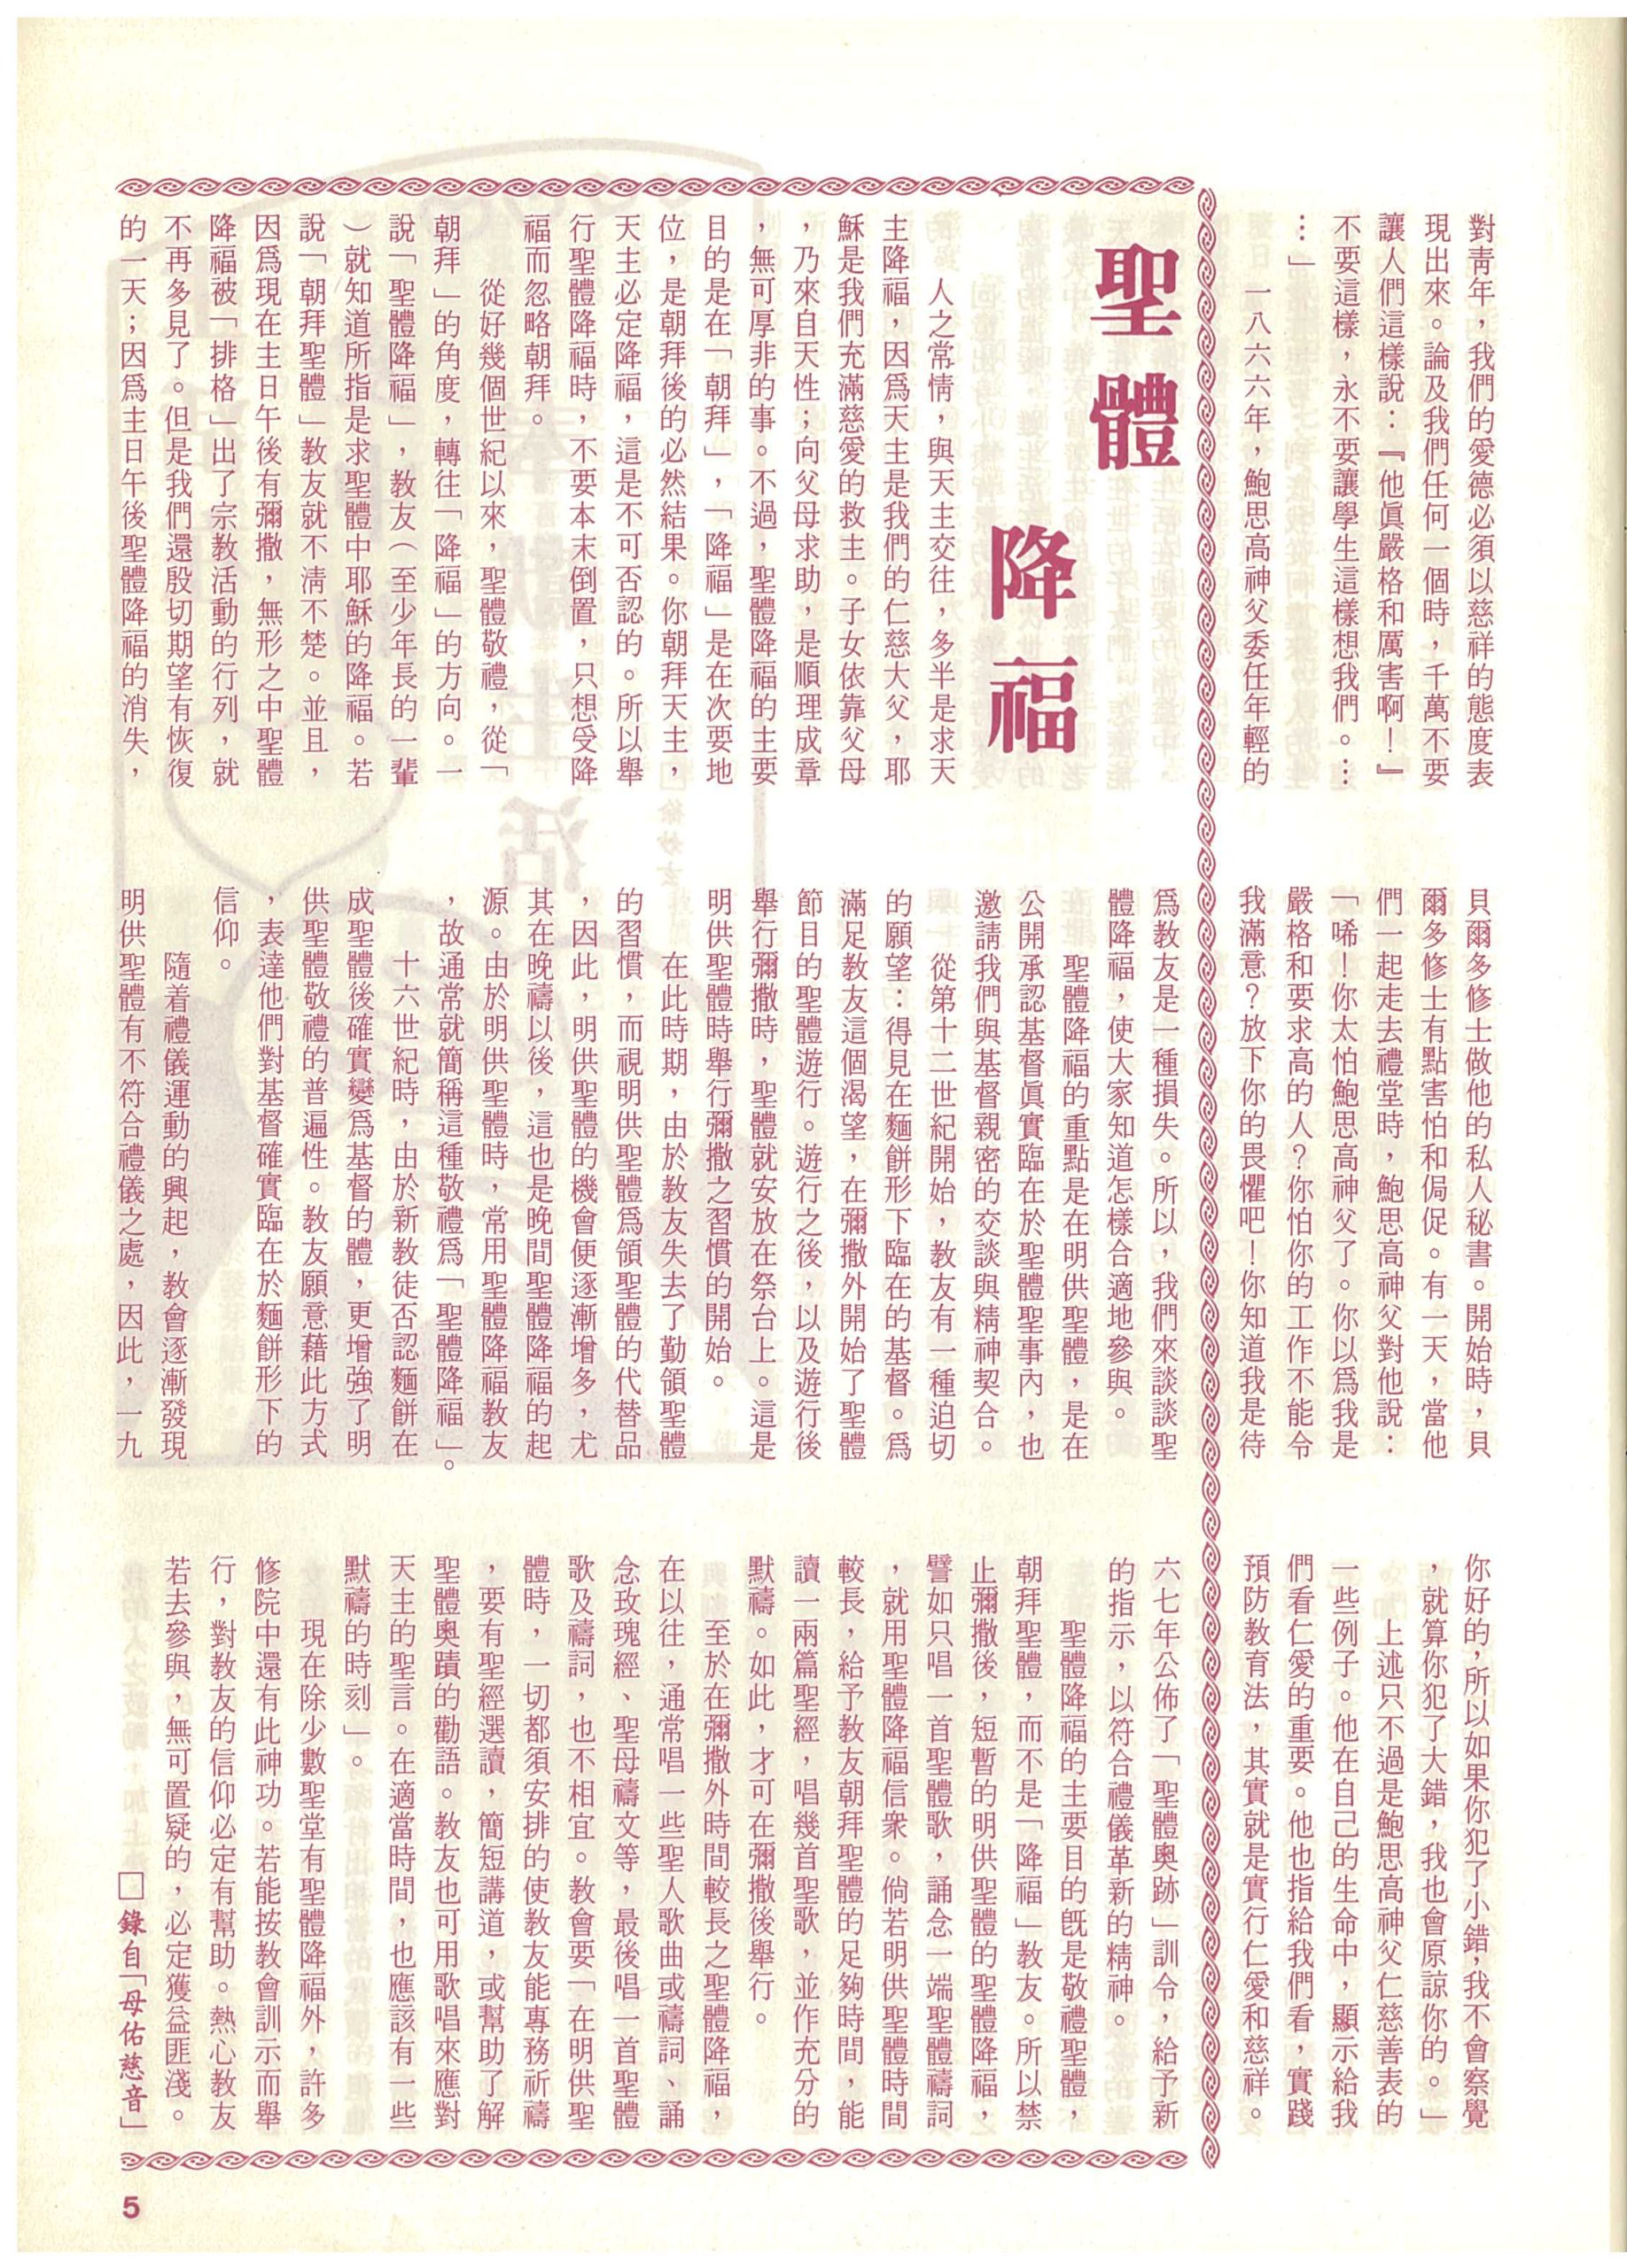 對靑年，我們的愛德必須以慈祥的態度表
現出來。論及我們任何一個時，千萬不要
讓人們這樣說：『他眞嚴格和厲害啊！』
不要這樣，永不要讓學生這樣想我們。…
…」
一八六六年，鮑思高神父委任年輕的
貝爾多修士做他的私人秘書。開始時，貝
爾多修士有點害怕和侷促。有一天，當他
們一起走去禮堂時，鮑思高神父對他說：
「唏！你太怕鮑思高神父了。你以爲我是
嚴格和要求高的人？你怕你的工作不能令
我滿意？放下你的畏懼吧！你知道我是待
你好的，所以如果你犯了小錯，我不會察覺
，就算你犯了大錯，我也會原諒你的。」
上述只不過是鮑思高神父仁慈善表的
一些例子。他在自己的生命中，顯示給我
們看仁愛的重要。他也指給我們看，實踐
預防教育法，其實就是實行仁愛和慈祥。
聖體
降福
人之常情，與天主交往，多半是求天
主降福，因爲天主是我們的仁慈大父，耶
穌是我們充滿慈愛的救主。子女依靠父母
，乃來自天性；向父母求助，是順理成章
，無可厚非的事。不過，聖體降福的主要
目的是在「朝拜」，「降福」是在次要地
位，是朝拜後的必然結果。你朝拜天主，
天主必定降福，這是不可否認的。所以舉
行聖體降福時，不要本末倒置，只想受降
福而忽略朝拜。
從好幾個世紀以來，聖體敬禮，從「
朝拜」的角度，轉往「降福」的方向。一
說「聖體降福」，教友（至少年長的一輩
）就知道所指是求聖體中耶穌的降福。若
說「朝拜聖體」教友就不淸不楚。並且，
因爲現在主日午後有彌撒，無形之中聖體
降福被「排格」出了宗教活動的行列，就
不再多見了。但是我們還殷切期望有恢復
的一天；因爲主日午後聖體降福的消失，
爲教友是一種損失。所以，我們來談談聖
體降福，使大家知道怎樣合適地參與。
聖體降福的重點是在明供聖體，是在
公開承認基督眞實臨在於聖體聖事內，也
邀請我們與基督親密的交談與精神契合。
從第十二世紀開始，教友有一種迫切
的願望：得見在麵餅形下臨在的基督。爲
滿足教友這個渴望，在彌撒外開始了聖體
節目的聖體遊行。遊行之後，以及遊行後
舉行彌撒時，聖體就安放在祭台上。這是
明供聖體時舉行彌撒之習慣的開始。
在此時期，由於教友失去了勤領聖體
的習慣，而視明供聖體爲領聖體的代替品
，因此，明供聖體的機會便逐漸增多，尤
其在晚禱以後，這也是晚間聖體降福的起
源。由於明供聖體時，常用聖體降福教友
，故通常就簡稱這種敬禮爲「聖體降福」。
十六世紀時，由於新教徒否認麵餅在
成聖體後確實變爲基督的體，更增強了明
供聖體敬禮的普遍性。教友願意藉此方式
，表達他們對基督確實臨在於麵餅形下的
信仰。
隨着禮儀運動的興起，教會逐漸發現
明供聖體有不符合禮儀之處，因此，一九
六七年公佈了「聖體奧跡」訓令，給予新
的指示，以符合禮儀革新的精神。
聖體降福的主要目的旣是敬禮聖體，
朝拜聖體，而不是「降福」教友。所以禁
止彌撒後，短暫的明供聖體的聖體降福，
譬如只唱一首聖體歌，誦念一端聖體禱詞
，就用聖體降福信衆。倘若明供聖體時間
較長，給予教友朝拜聖體的足夠時間，能
讀一兩篇聖經，唱幾首聖歌，並作充分的
默禱。如此，才可在彌撒後舉行。
至於在彌撒外時間較長之聖體降福，
在以往，通常唱一些聖人歌曲或禱詞、誦
念玫瑰經、聖母禱文等，最後唱一首聖體
歌及禱詞，也不相宜。教會要「在明供聖
體時，一切都須安排的使教友能專務祈禱
，要有聖經選讀，簡短講道，或幫助了解
聖體奧蹟的勸語。教友也可用歌唱來應對
天主的聖言。在適當時間，也應該有一些
默禱的時刻」。
現在除少數聖堂有聖體降福外，許多
修院中還有此神功。若能按教會訓示而舉
行，對教友的信仰必定有幫助。熱心教友
若去參與，無可置疑的，必定獲益匪淺。
□錄自「母佑慈音」
5